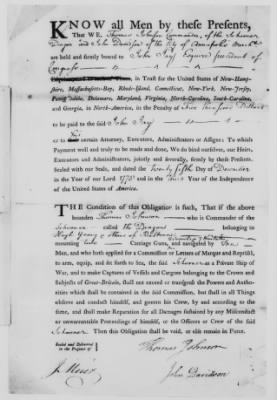 KNOW all Men by these Presents,
That WE, Thomas Johnson Commander of the Schooner
Dragon and John Davidson of the City of Annapolis
are held and firmly bound to John Jay Esquire President of
Congress
in Trust for the United States of New-Hamp-
shire, Massachusetts-Bay, Rhode-Island, Connecticut, New-York, New-Jersey,
Pennsylvania, Delaware, Maryland, Virginia, North-Carolina, South-Carolina,
and Georgia, in North-America, in the Penalty of Five Thousand Dollars
to be paid to the said John Jay
or his certain Attorney, Executors, Administrators or Assigns: To which
Payment well and truly to be made and done, We do bind ourselves, our Heirs,
Executors and Administrators, jointly and severally, firmly by these Presents.
Sealed with our Seals, and dated the Twenty fifth Day of December
in the Year of our Lord and in the Year of the Independence of
the United States of America.
THE Condition of this Obligation is such, That if the above
bounden Thomas Johnson who is Commander of the
Schooner called the Dragon belonging to
Hugh Young
mounting Carriage Guns, and navigated by
Men, and who both applied for a Commission or Letters of Marque and Reprisal,
to arm, equip, and set forth to Sea, the said Schooner as a Private Ship of
War, and to make Captures of Vessels and Cargoes belonging to the Crown and
Subjects of Great-Britain, shall not exceed or transgress the Powers and Autho-
rities which shall be contained in the said Commission, but shall in all Things
observe and conduct himself, and govern his Crew, by and according to the
same, and shall make Reparation for all Damages sustained by any Misconduct
or unwarrantable Proceedings of himself, or the Officers or Crew of the said
Schooner Then this Obligation shall be void, or else remain in Force.
Sealed and Delivered
in the Presence of
Thomas Johnson
John Davidson